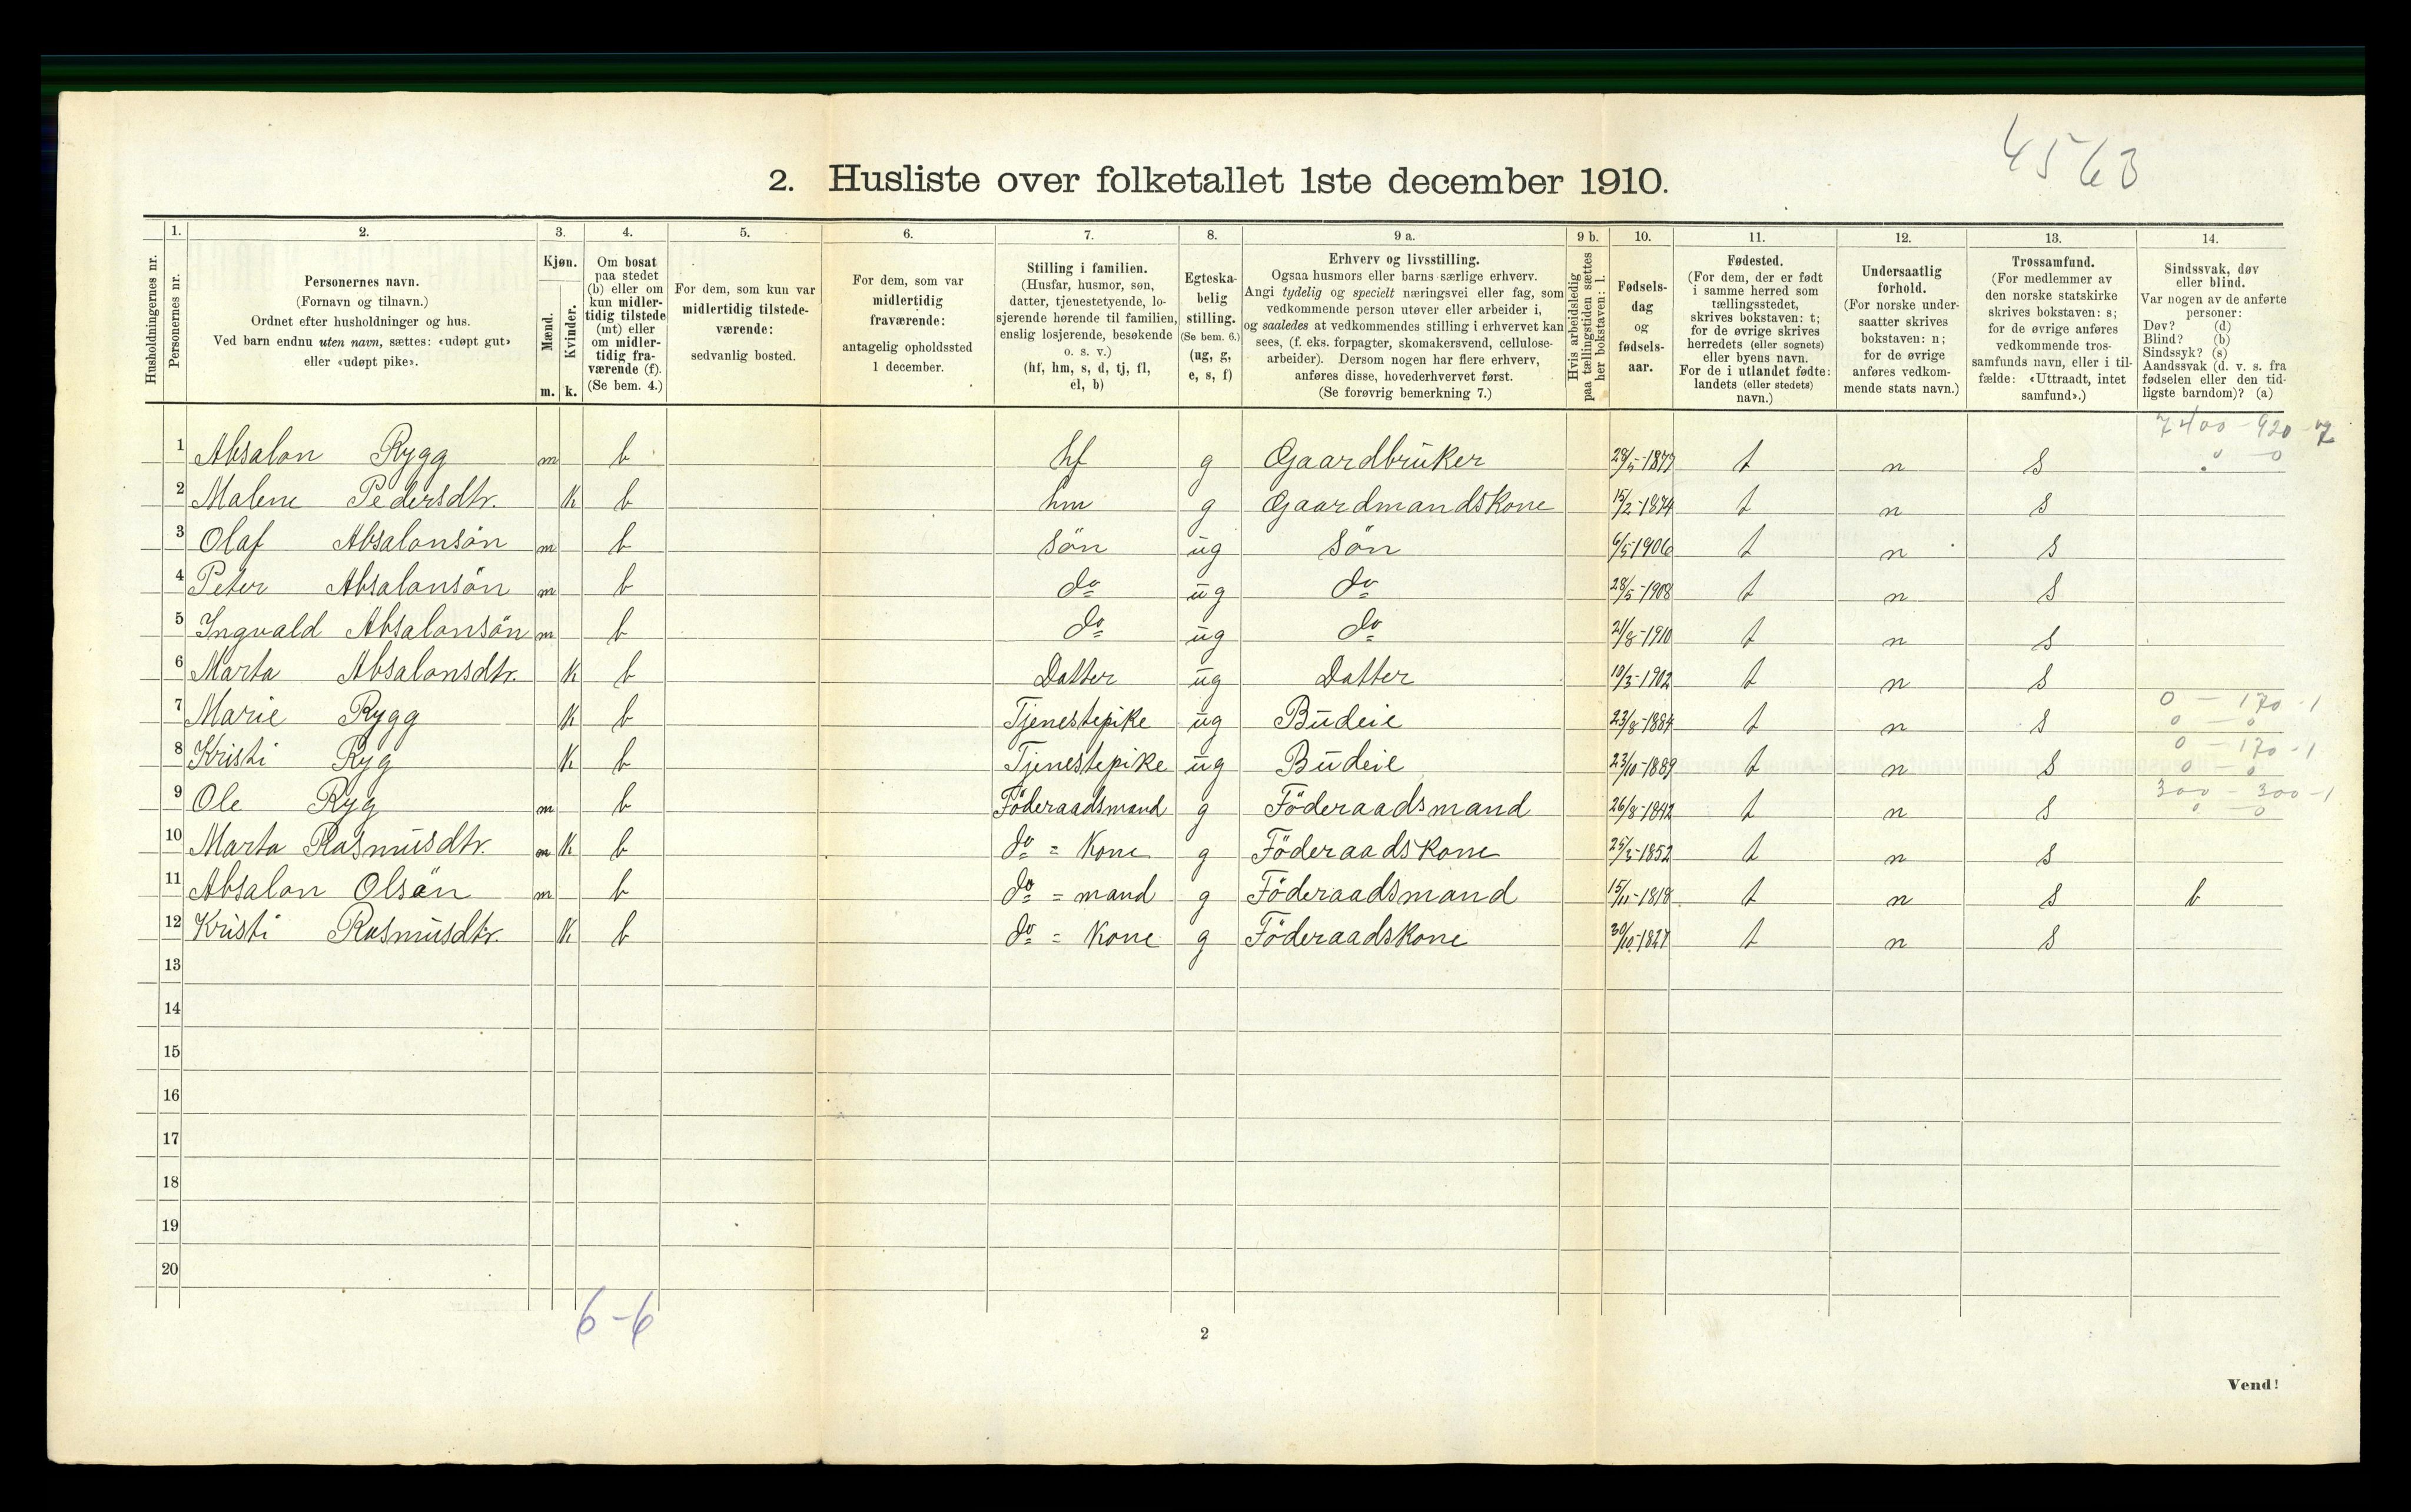 4563
2. Husliste over folketallet 1ste december 1910.
1. 2. 3. 4. 5. 6. 7. 8. 9 a. 9 b. 10. 11. 12. 13. 14.
Husholdningernes nr.
Personernes nr.
Personernes navn.
(Fornavn og tilnavn.)
Ordnet efter husholdninger og hus.
Ved barn endnu uten navn, sættes: «udøpt gut»
eller «udøpt pike».
Kjøn.
Mænd.
Kvinder.
m. k.
Om bosat
paa stedet
(b) eller om
kun midler-
tidig tilstede
(mt) eller
om midler-
tidig fra-
værende (f).
(Se bem. 4.)
For dem, som kun var
midlertidig tilstede-
værende:
sedvanlig bosted.
For dem, som var
midlertidig
fraværende:
antagelig opholdssted
1 december.
Stilling i familien.
(Husfar, husmor, søn,
datter, tjenestetyende, lo-
sjerende hørende til familien,
enslig losjerende, besøkende
o. s. v.)
(hf, hm, s, d, tj, fl,
el, b)
Egteska-
belig
stilling.
(Se bem. 6.)
(ug, g,
e, s, f)
Erhverv og livsstilling.
Ogsaa husmors eller barns særlige erhverv.
Angi tydelig og specielt næringsvei eller fag, som
vedkommende person utøver eller arbeider i,
og saaledes at vedkommendes stilling i erhvervet kan
sees, (f. eks. forpagter, skomakersvend, cellulose-
arbeider). Dersom nogen har flere erhverv,
anføres disse, hovederhvervet først.
(Se forøvrig bemerkning 7.)
Hvis arbeidsledig
paa tællingstiden sættes
her bokstaven: l.
Fødsels-
dag
og
fødsels-
aar.
Fødested.
(For dem, der er født
i samme herred som
tællingsstedet,
skrives bokstaven: t;
for de øvrige skrives
herredets (eller sognets)
eller byens navn.
For de i utlandet fødte:
landets (eller stedets)
navn.)
Undersaatlig
forhold.
(For norske under-
saatter skrives
bokstaven: n;
for de øvrige
anføres vedkom-
mende stats navn.)
Trossamfund.
(For medlemmer av
den norske statskirke
skrives bokstaven: s;
for de øvrige anføres
vedkommende tros-
samfunds navn, eller i til-
fælde: «Uttraadt, intet
samfund».)
Sindssvak, døv
eller blind.
Var nogen av de anførte
personer:
Døv? (d)
Blind? (b)
Sindssyk? (s)
Aandssvak (d. v. s. fra
fødselen eller den tid-
ligste barndom)? (a)
1 Absalon Rygg m b hf g Gaardbruker t n s
2 Malene Pedersdtr. K b hm g Gaardmandskone 15/2-1874 t n s
3 Olaf Absalonsön m b sön ug sön 6/5-1906 t n s
4 Peter Absalonsön m b do ug do 28/5-1908 t n s
5 Ingvald Absalonsön m b do ug do 21/8-1910 t n s
6 Marta Absalonsdtr. K b Datter ug Datter 10/3-1902 t n s
0 - 170 - 1
7 Marie Rygg K b Tjenestepike ug Budeie 23/8-1884 t n s 0 - 0
0 - 170 - 1
8 Kristi Ryg K b Tjenestepike ug Budeie 23/10-1889 t n s 0 - 0
300 - 300 - 1
9 Ole Ryg m b Föderaadsmand g Föderaadsmand 26/8-1842 t n s 0 - 0
10 Marta Rasmusdtr. K b do = Kone g Föderaadskone t n s
11 Absalon Olsön m b do = mand g Föderaadsmand 15/11-1818 t n s b
12 Kristi Rasmusdtr. K b do = Kone g Föderaadskone t n s
13
14
15
16
17
18
19
20
6-6
2
Vend!